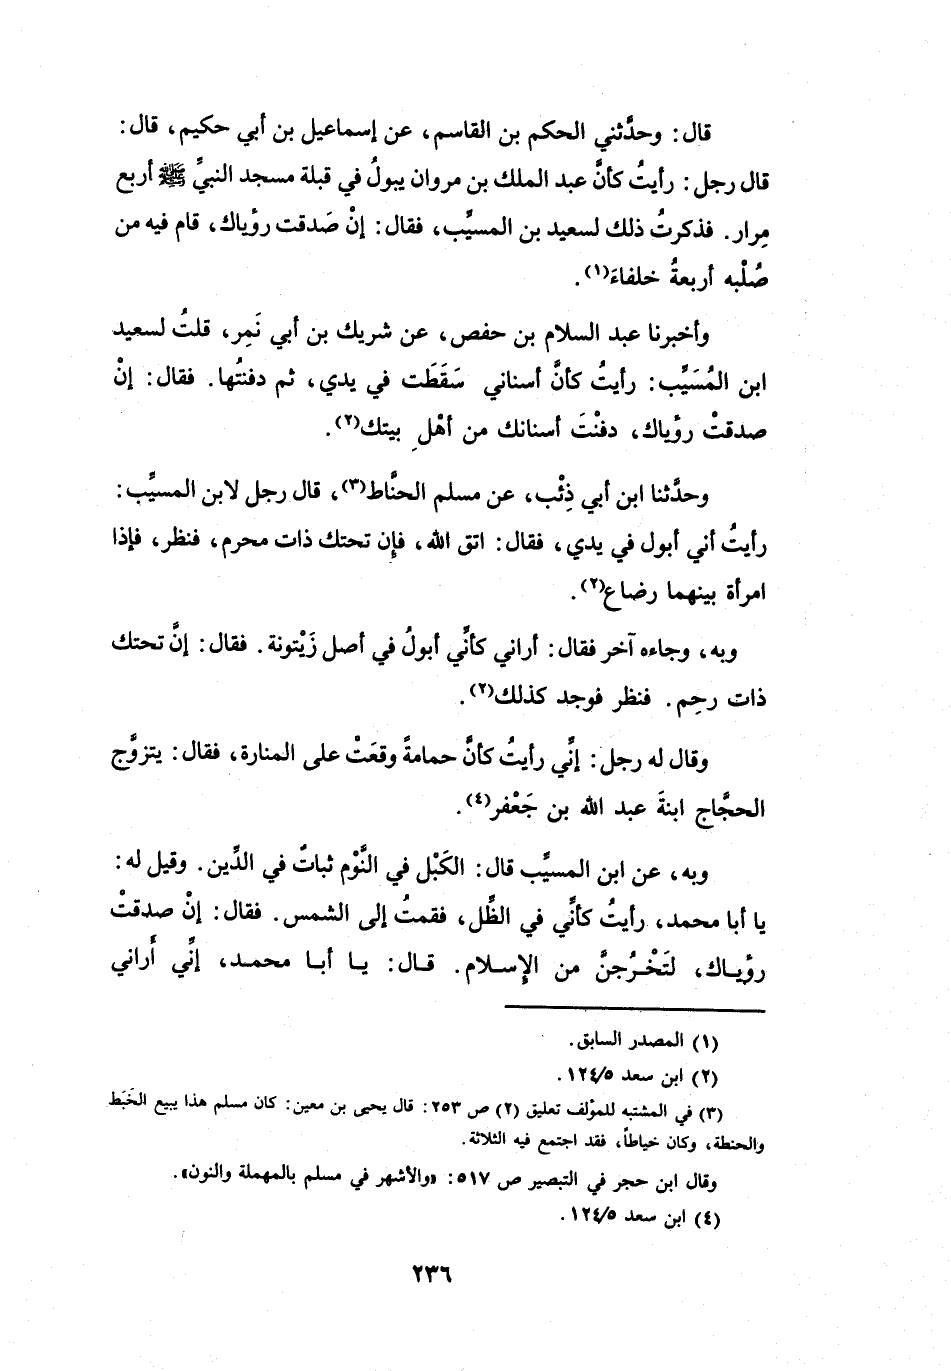 قال: وحدَّثني الحكم بن القاسم، عن إسماعيل بن أبي حكيم، قال:
قال رجل: رأيتُ كأنَّ عبد الملك بن مروان يبولُ في قبلة مسجد النبيِّ ﷺ أربع
مِرار. فذكرتُ ذلك لسعيد بن المسيَّب، فقال: إنْ صَدقت رؤياك، قام فيه من
صُلْبه أربعةُ خلفاءَ(١).
وأخبرنا عبد السلام بن حفص، عن شريك بن أبي نَمِر، قلتُ لسعيد
ابن المُسَيِّب: رأيتُ كأنَّ أسناني سَقَطَت في يدي، ثم دفنتُها. فقال: إنْ
صدقتْ رؤياك، دفنْتَ أسنانك من أهْلِ بيتك(٢).
وحدَّثنا ابن أبي ذِئْب، عن مسلم الحنَّاط(٣)، قال رجل لابن المسيِّب:
رأيتُ أني أبول في يدي، فقال: اتق الله، فإن تحتك ذات محرم، فنظر، فإذا
امرأة بينهما رضاع(٢).
وبه، وجاءه آخر فقال: أراني كأنِّي أبولُ في أصل زَيْتونة. فقال: إنَّ تحتك
ذات رحِم. فنظر فوجد كذلك(٢).
وقال له رجل: إنِّي رأيتُ كأنَّ حمامةً وقعَتْ على المنارة، فقال: يتزوَّج
الحجَّاج ابنةَ عبد الله بن جَعْفر(٤).
وبه، عن ابن المسيَّب قال: الكَبْل في النَّوْم ثباتٌ في الدِّين. وقيل له:
يا أبا محمد، رأيتُ كأنِّي في الظِّل، فقمتُ إلى الشمس. فقال: إنْ صدقتْ
رؤياك، لتَخْرُجنَّ من الإسلام. قال: يا أبا محمد، إنِّي أَراني
(١) المصدر السابق.
(٢) ابن سعد ١٢٤/٥.
(٣) في المشتبه للمؤلف تعليق (٢) ص ٢٥٣: قال يحيى بن معين: كان مسلم هذا يبيع الخَبَط
والحنطة، وكان خياطاً، فقد اجتمع فيه الثلاثة.
وقال ابن حجر في التبصير ص ٥١٧: «والأشهر في مسلم بالمهملة والنون».
(٤) ابن سعد ١٢٤/٥.
٢٣٦